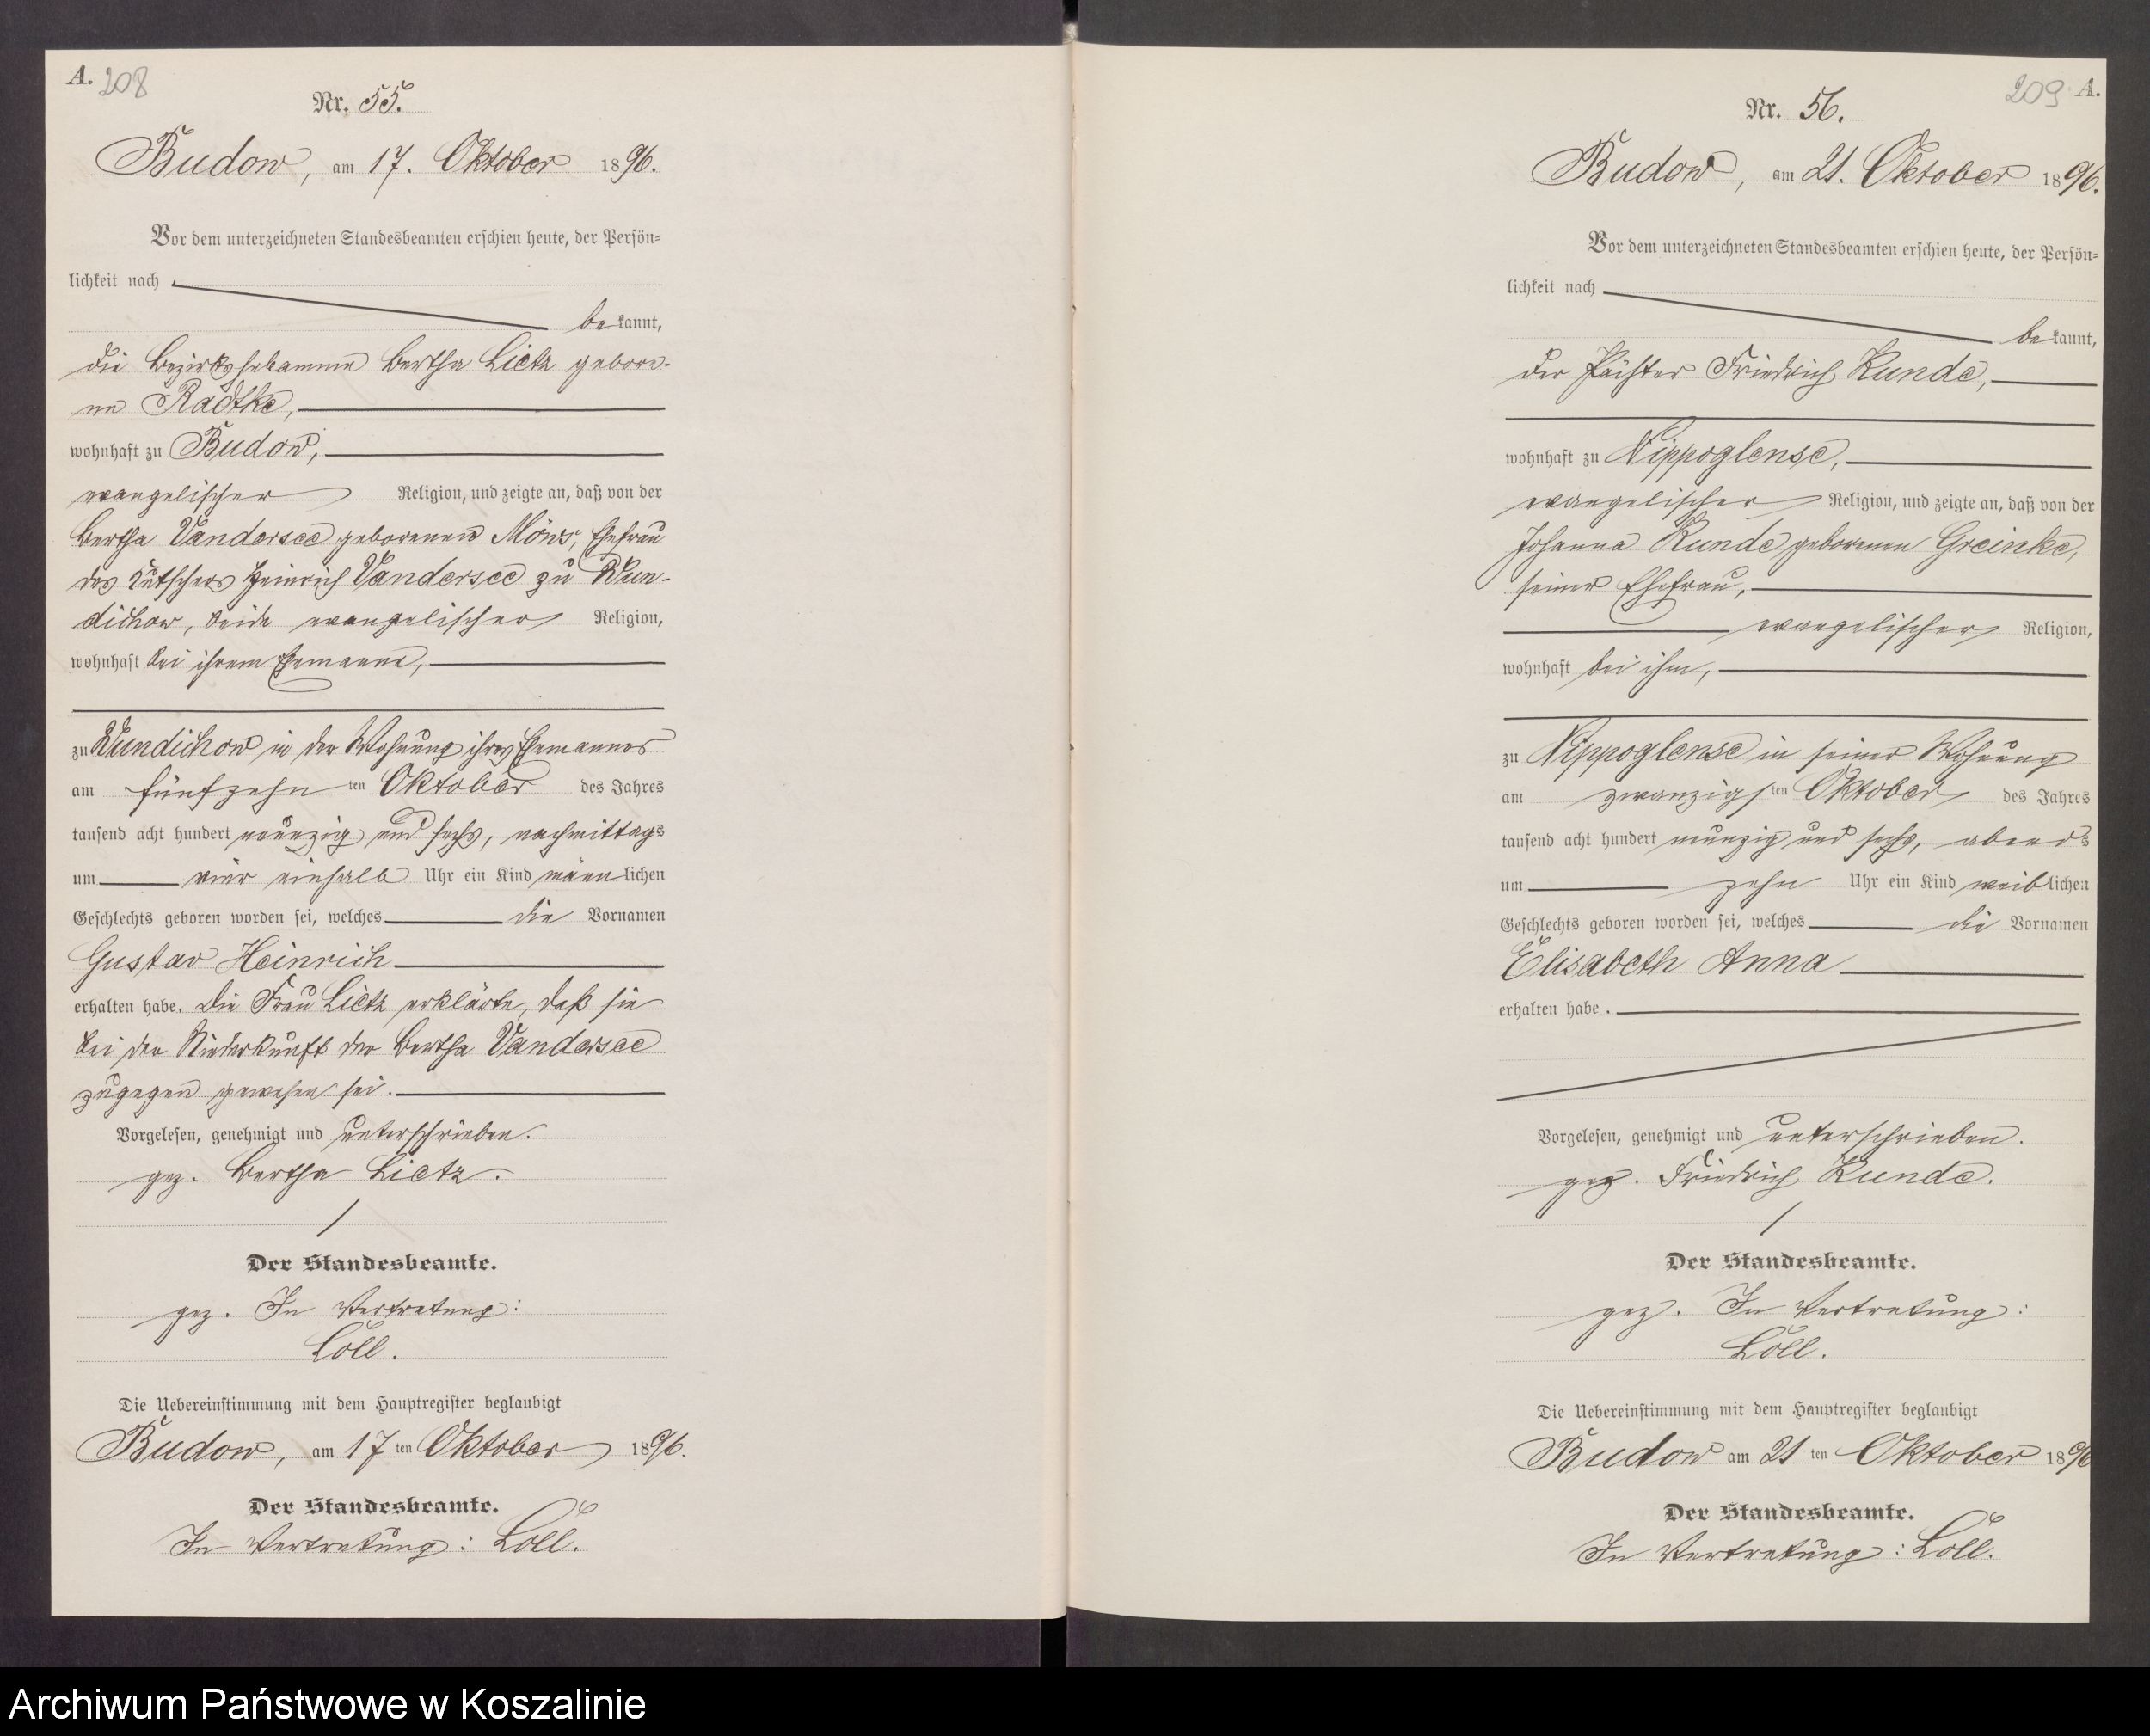 A. 208
Nr. 55.
Budow, am 17. Oktober 1896.
Vor dem unterzeichneten Standesbeamten erschien heute, der Persön-
lichkeit nach
bekannt,
die Bezirkshebamme Bertha Lietz gebore-
ne Radtke,
wohnhaft zu Budow,
evangelischer Religion, und zeigte an, daß von der
Bertha Vandersee geborenen Möws, Ehefrau
des Kutschers Heinrich Vandersee zu Wun-
dichow, beide evangelischer Religion,
wohnhaft bei ihrem Ehemanne,
zu Wundichow in der Wohnung ihres Ehemannes
am fünfzehnten Oktober des Jahres
tausend acht hundert neunzig und sechs, nachmittags
um vier einhalb Uhr ein Kind männlichen
Geschlechts geboren worden sei, welches die Vornamen
Gustav Heinrich
erhalten habe. Die Frau Lietz erklärte, daß sie
bei der Niederkunft der Bertha Vandersee
zugegen gewesen sei.
Vorgelesen, genehmigt und unterschrieben.
gez. Bertha Lietz.
Der Standesbeamte.
gez. In Vertretung:
Löll.
Die Uebereinstimmung mit dem Hauptregister beglaubigt
Budow, am 17ten Oktober 1896.
Der Standesbeamte.
In Vertretung: Löll.
209 A.
Nr. 56.
Budow, am 21. Oktober 1896.
Vor dem unterzeichneten Standesbeamten erschien heute, der Persön-
lichkeit nach
bekannt,
der Pächter Friedrich Kunde,
wohnhaft zu Nippoglense,
evangelischer Religion, und zeigte an, daß von der
Johanna Kunde geborenen Greinke,
seiner Ehefrau,
evangelischer Religion,
wohnhaft bei ihm,
zu Nippoglense in seiner Wohnung
am zwanzigsten Oktober des Jahres
tausend acht hundert neunzig und sechs, abends
um zehn Uhr ein Kind weiblichen
Geschlechts geboren worden sei, welches die Vornamen
Elisabeth Anna
erhalten habe.
Vorgelesen, genehmigt und unterschrieben.
gez. Friedrich Kunde.
Der Standesbeamte.
gez. In Vertretung:
Löll.
Die Uebereinstimmung mit dem Hauptregister beglaubigt
Budow am 21ten Oktober 1896
Der Standesbeamte.
In Vertretung: Löll.
Archiwum Państwowe w Koszalinie